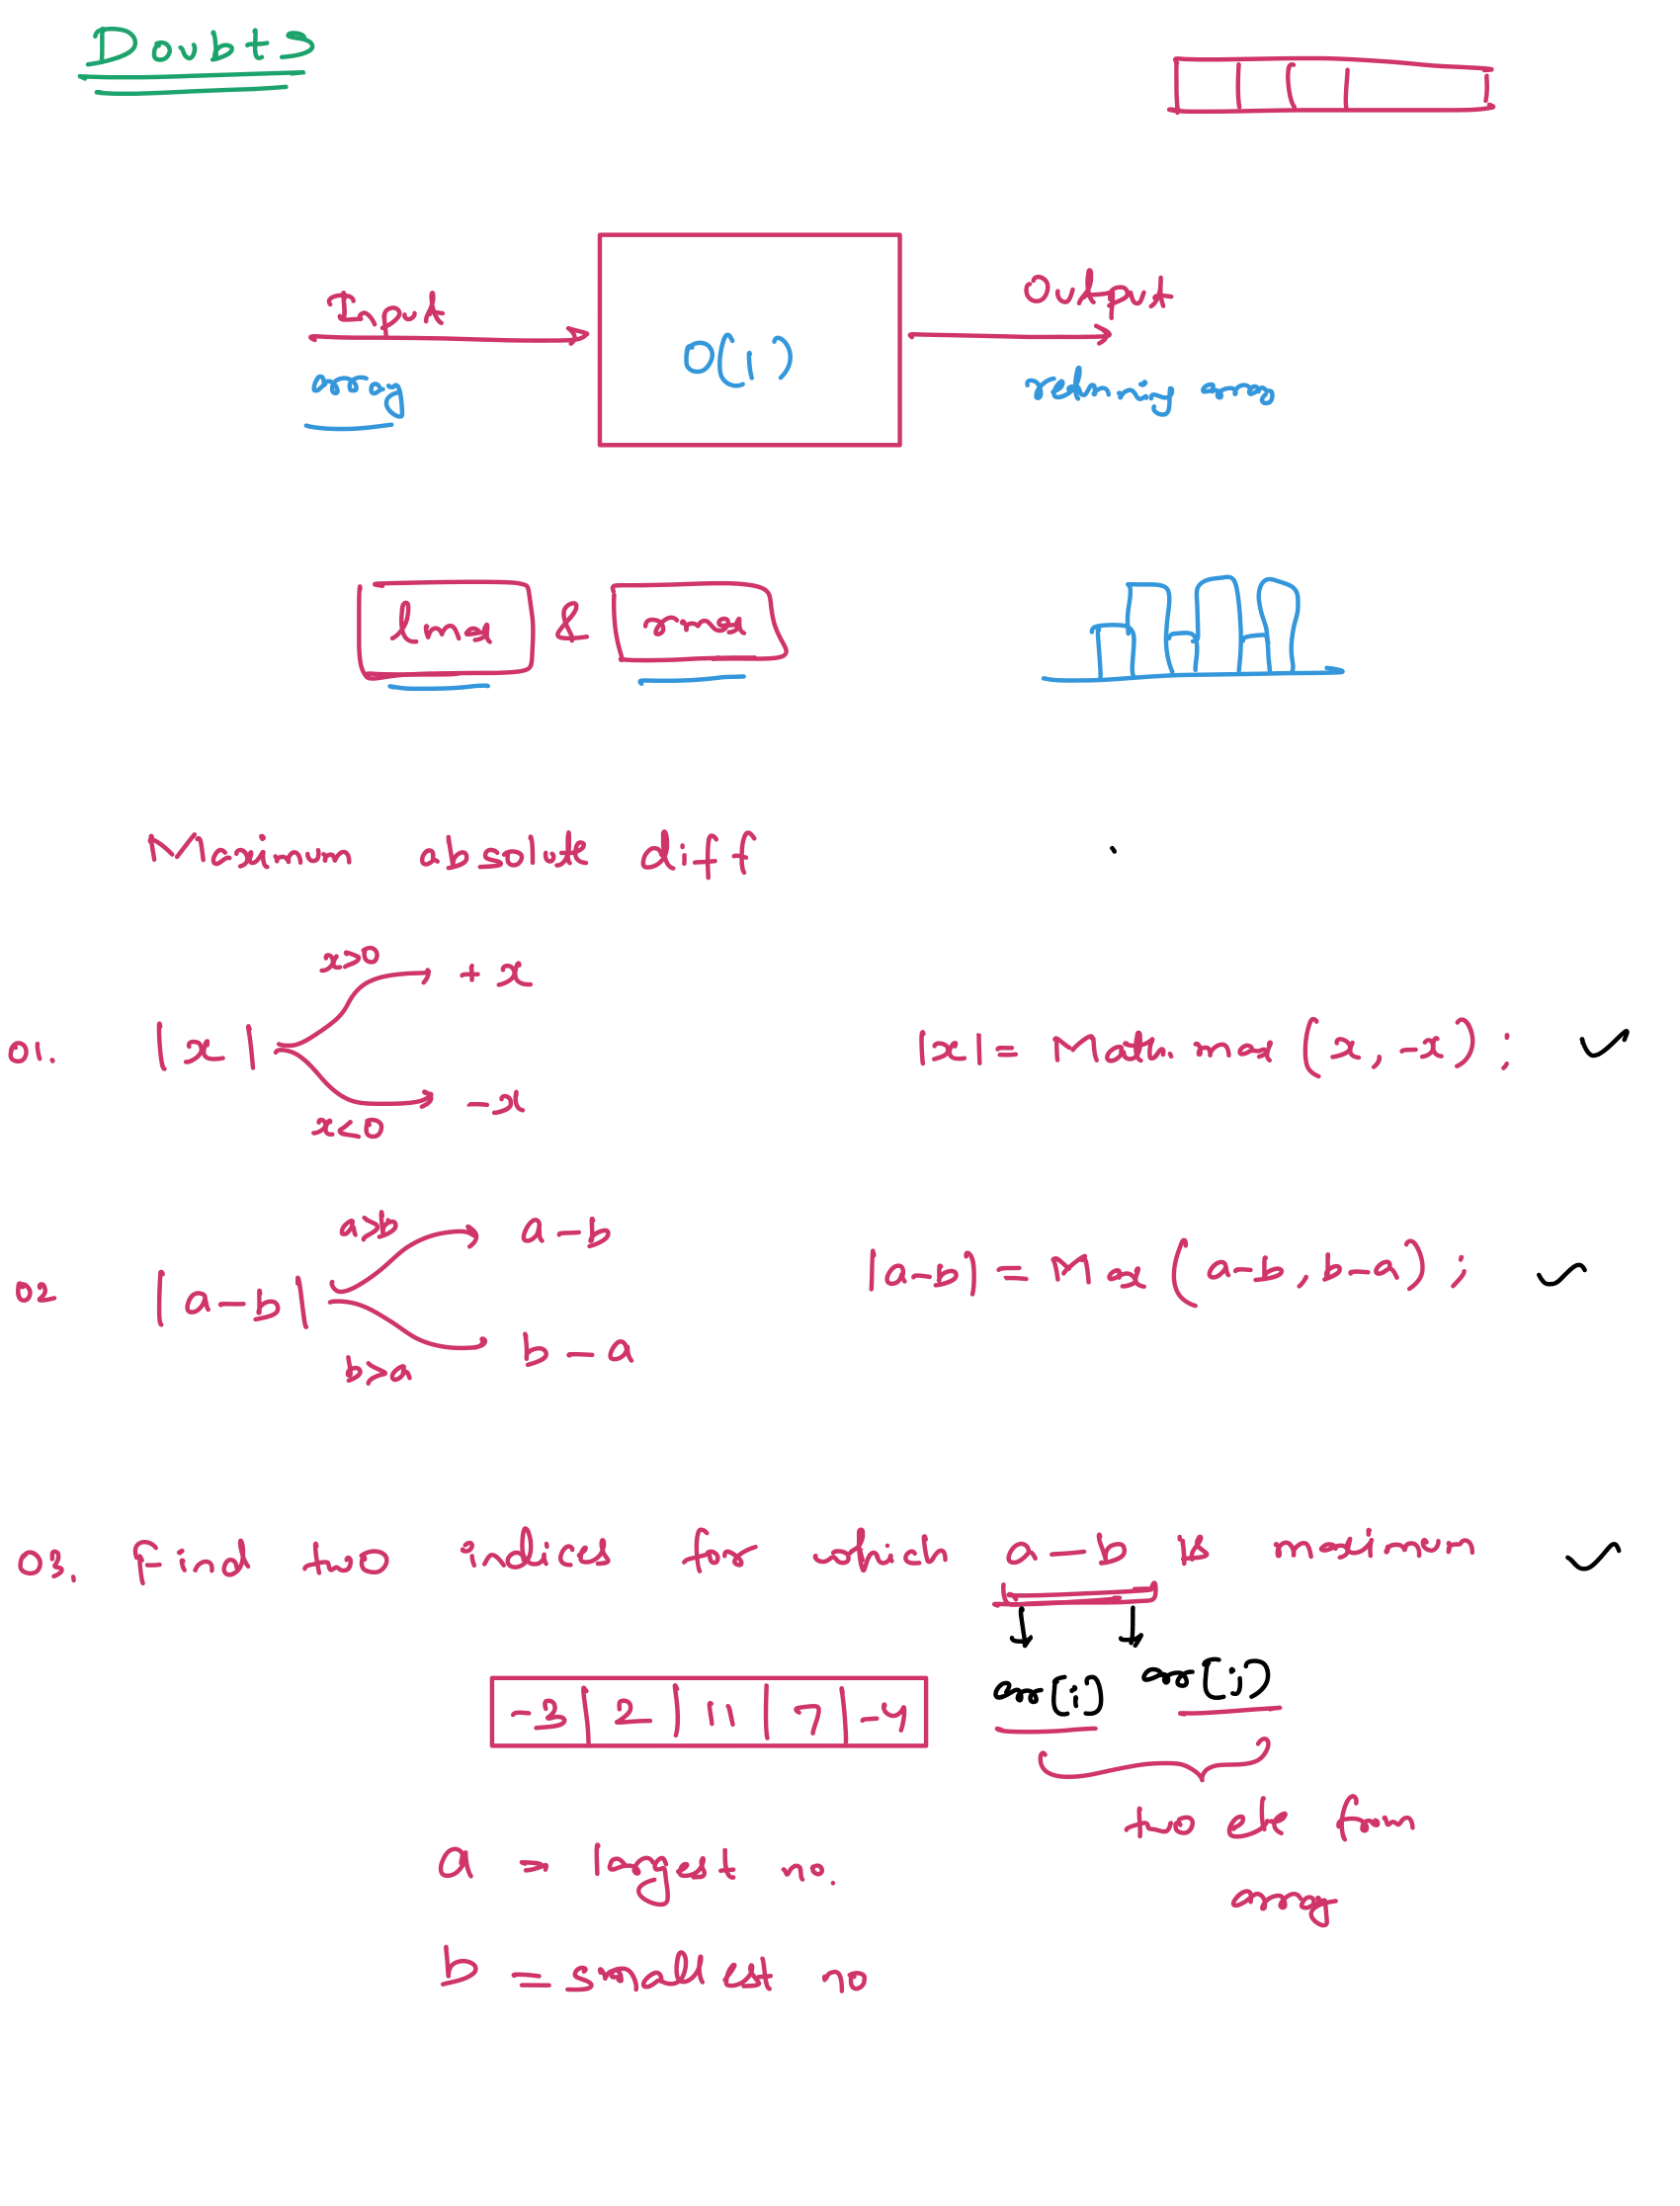 Doubts
Input
array
O(1)
Output
returning array
lmax & rmax
Maximum absolute diff
01. |x|
x>0 + x
x<0 -x
|x| = Math.max(x, -x);
02 |a-b|
a>b a-b
b>a b-a
|a-b| = Max(a-b, b-a);
03. Find two indices for which a-b is maximum
arr[i] arr[j]
-3 | 2 | 11 | 7 | -4
two ele from
array
a = largest no.
b = smallest no